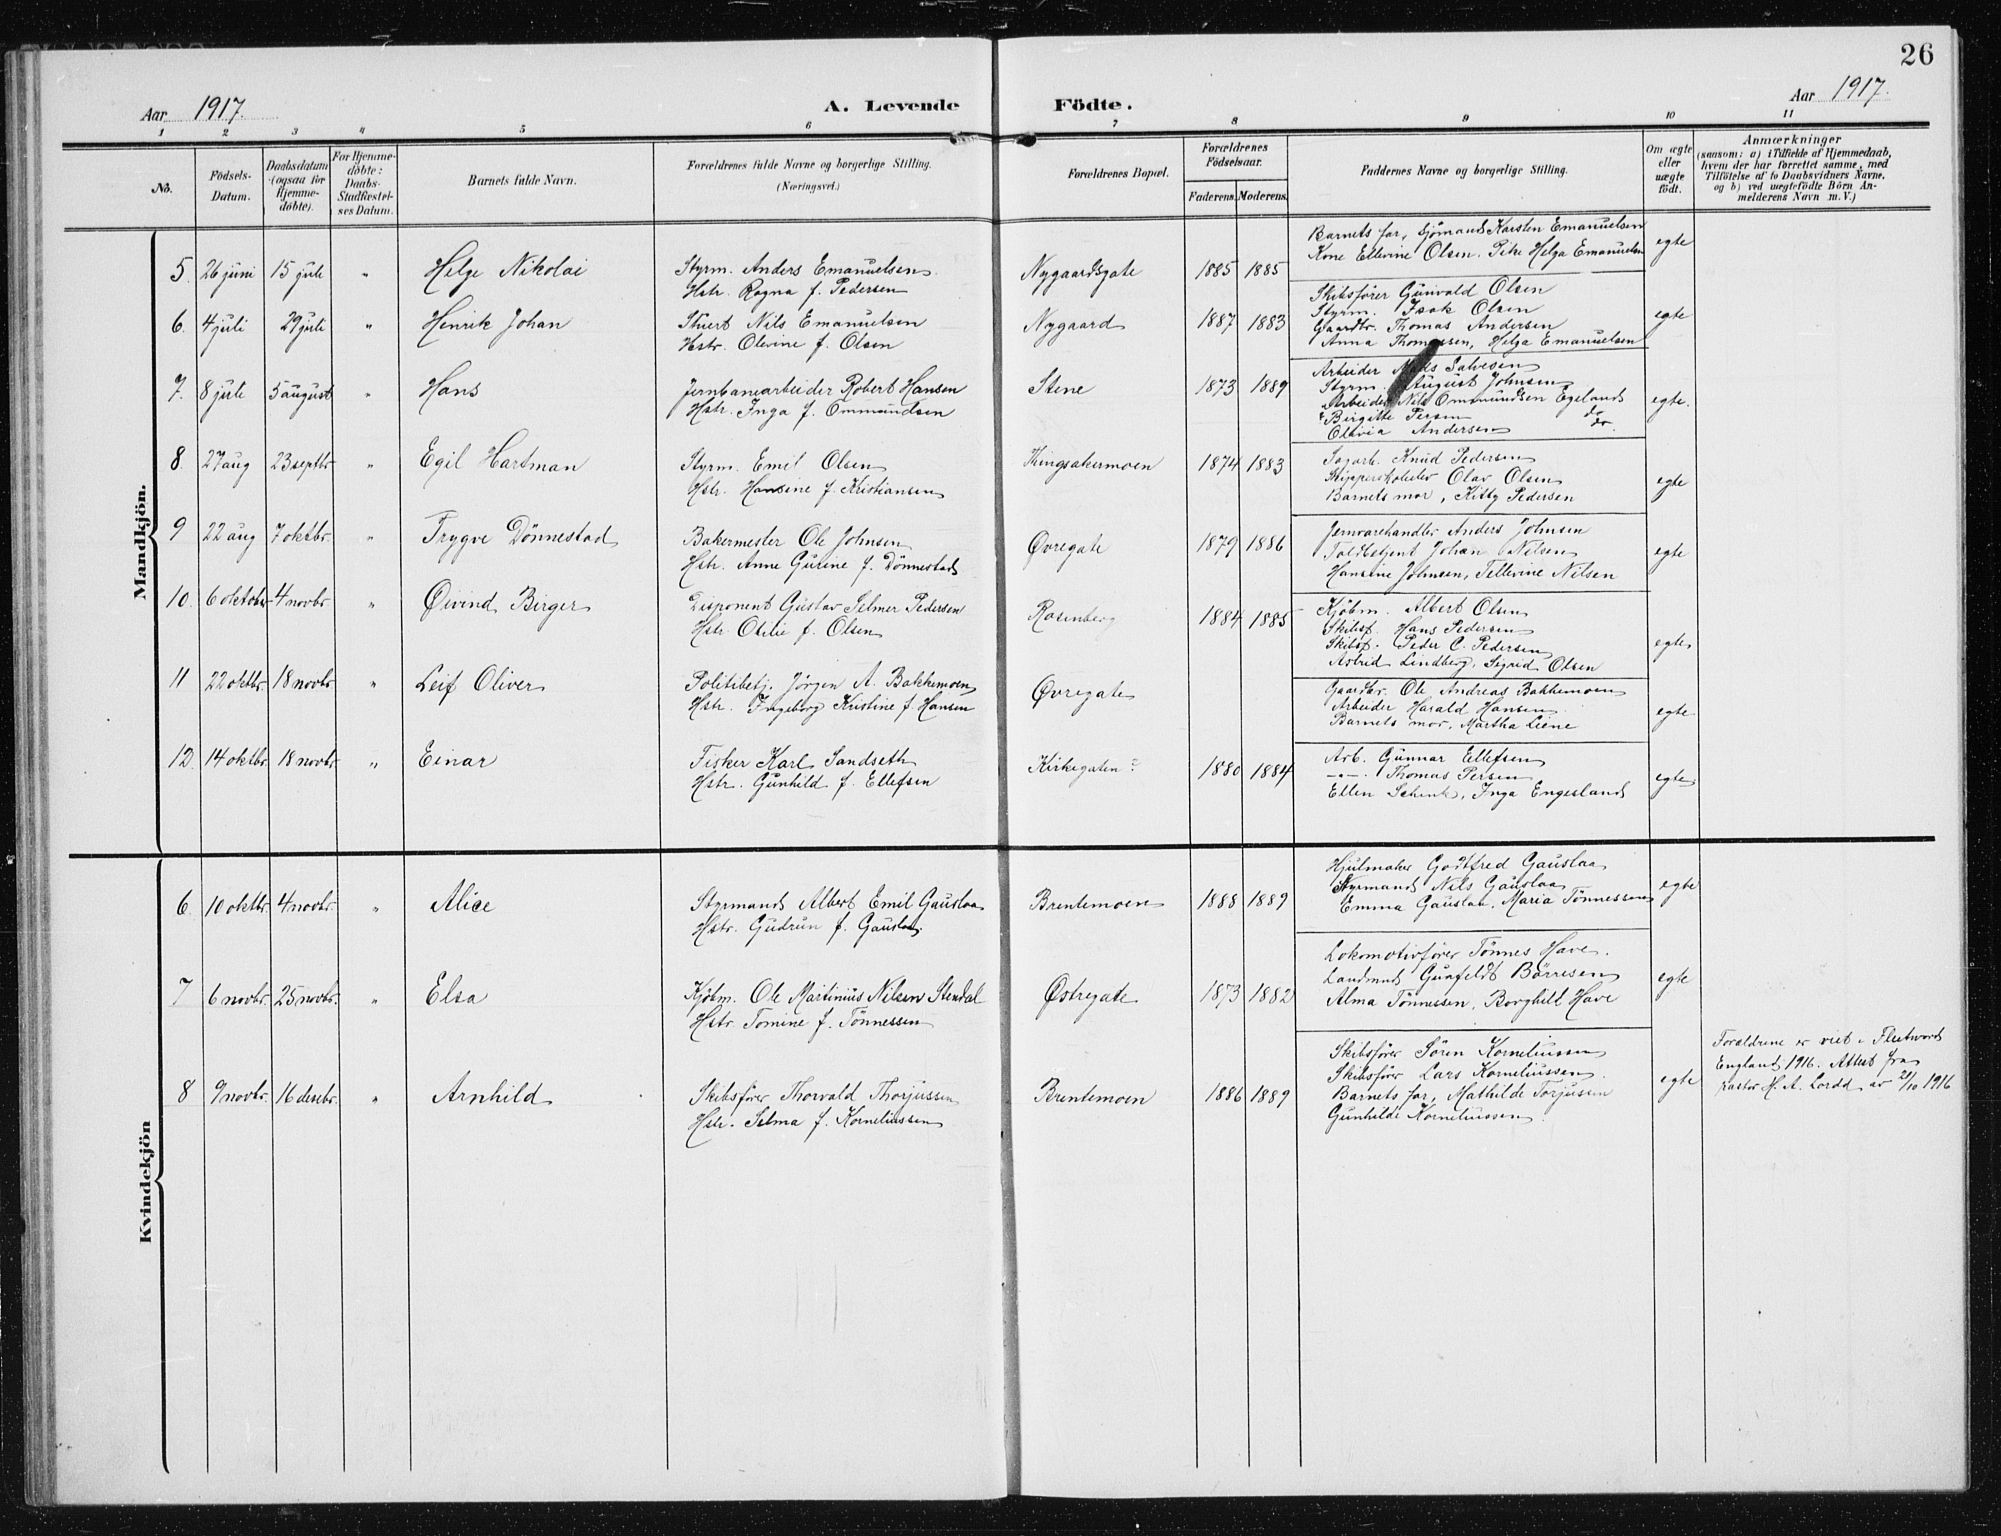 26
Aar 1917.
A. Levende Födte.
Aar 1917.
1 2 3 4 5 6 7 8 9 10 11
No.
Födsels-Datum.
Daabsdatum (ogsaa for Hjemme-döbte).
For Hjemme-döbte: Daabs-Stadfæstel-ses Datum.
Barnets fulde Navn.
Forældrenes fulde Navne og borgerlige Stilling. (Næringsvei.)
Forældrenes Bopæl.
Forældrenes Födselsaar.
Faderens. Moderens.
Faddernes Navne og borgerlige Stilling.
Om ægte eller uægte födt.
Anmærkninger
(saasom: a) i Tilfælde af Hjemmedaab,
hvem der har forrettet samme, med
Tilföielse af to Daabsvidners Navne,
og b) ved uægtefödte Börn An-
melderens Navn m. V.)
Mandkjön.
Barnets far, Sjömand Karsten Emanuelsen
Kone Ellevine Olsen. Pike Helga Emanuelsen
5. 26 juni 15 juli " Helge Nikolai Styrm. Anders Emanuelsen Nygaardsgate 1885 1885 egte
Hstr. Ragna f. Pedersen
Skibsfører Gunvald Olsen
6. 4 juli 29 juli " Henrik Johan Stuert Nils Emanuelsen Nygaard 1887 1883 Styrm. Isak Olsen egte
Hstr. Olevine f. Olsen Gaardbr. Thomas Andersen
Anna Thomassen, Helga Emanuelsen
Arbeider Salvesen
7. 8 juli 5 august " Hans Jernbanearbeider Robert Hansen Stene 1873 1889 Styrm. August Johnsen egte.
Hstr. Inga f. Ommundsen Arbeider Nils Ommundsen Egeland
Birgitte Persen do
Olavia Andersen do.
8. 27 aug 23 septbr " Egil Hartman Styrm. Emil Olsen Kingsakermoen 1874 1883 Sagarb. Knud Pedersen egte
Hstr. Hansine f. Kristiansen Olav Olsen
Barnets mor, Kitty Pedersen
9 22 aug 7 oktbr. " Trygve Dönnestad Bakermester Ole Johnsen Øvregate 1879 1886 Jernvarehandler Anders Johnsen egte
Hstr. Anne Gurine f. Dönnestad Toldbetjent Johan Nilsen
Hansine Johnsen, Tellevine Nilsen
10. 6 oktober 4 novbr. " Øivind Birger Disponent Gustav Selmer Pedersen Rosenberg 1884 1885 Kjöbm. Albert Olsen egte
Hstr. Otilie f. Olsen Skibsf. Hans Pedersen
Skibsf. Peder C. Pedersen
Astrid Lindberg, Sigrid Olsen
11 22 oktbr. 18 novbr " Leif Oliver Politibetj. Jörgen A. Bakkemoen Øvregate Gaardbr. Ole Andreas Bakkemoen egte
Hstr. Ingeborg Kristine f. Hansen Arbeider Harald Hansen
Barnets mor, Martha Leine
12. 14 oktbr. 18 novbr. " Einar Fisker Karl Sandseth Kirkegaten 1880 1884 Arb. Gunnar Ellefsen egte
Hstr. Gunhild f. Ellefsen -"- Thomas Persen
Ellen Schenk, Inga Engesland
Kvindekjön
Hjulmaker Godtfred Gauslaa
6 10 oktbr. 4 novbr. " Alice Styrmand Albert Emil Gauslaa Brentemoen 1888 1889 Styrmand Nils Gauslaa egte
Hstr. Gudrun f. Gauslaa Emma Gauslaa, Maria Tönnessen
Lokomotivfører Tönnes Have.
7 6 novbr. 25 novbr. " Elsa Kjöbm. Ole Martinius Nilsen Stendal Østregate 1873 1882 Landmand Gunfeldt Börresen egte
Hstr. Tomine f. Tönnessen Alma Tönnessen, Borghill Have
8 9 novbr. 16 desebr. " Arnhild Skibsfører Thorvald Thorjussen Brentemoen 1886 1889 Skibsfører Sören Korneliussen egte
Hstr. Selma f. Korneliussen Skibsfører Lars Korneliussen.
Barnets far, Mathilde Torjussen
Gunhilde Korneliussen
Forældrene er viet i Fleetwood
England 1916. Attest fra
pastor H. A. Lordd av 21/10 1916